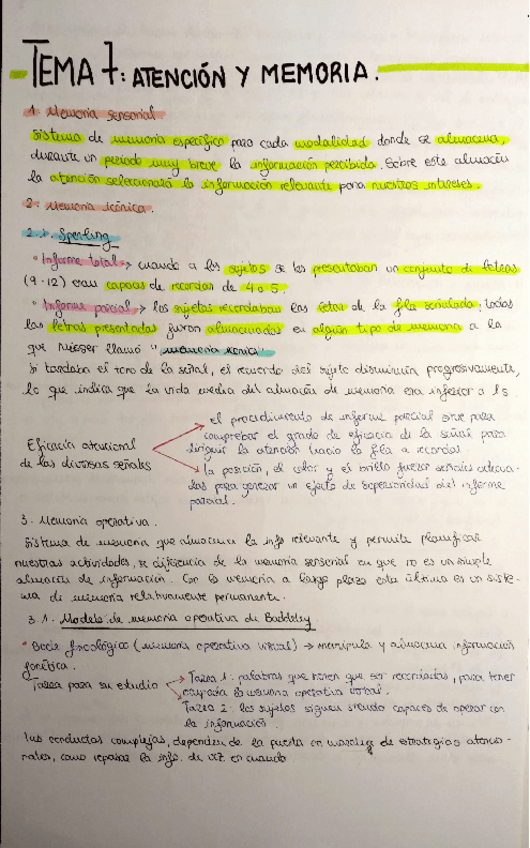 TEMA 7: ATENCIÓN Y MEMORIA.
1. Memoria sensorial
Sistema de memoria específico para cada modalidad donde se almacena,
durante un periodo muy breve la información percibida. Sobre este almacén
la atención seleccionará la información relevante para nuestros intereses.
2. Memoria icónica.
2.1. Sperling
° Informe total → cuando a los sujetos se les presentaban un conjunto de letras
(9-12) eran capaces de recordar de 4 o 5.
° Informe parcial → los sujetos recordaban las letras de la fila señalada; todas
las letras presentadas fueron almacenadas en algún tipo de memoria a la
que Neisser llamó "memoria icónica"
Si tardaba el tono de la señal, el recuerdo del sujeto disminuía progresivamente,
lo que indica que la vida media del almacén de memoria era inferior a 1s
Eficacia atencional
de las diversas señales
el procedimiento de informe parcial sirve para
comprobar el grado de eficacia de la señal para
dirigir la atención hacia la fila a recordar.
la posición, el color y el brillo fueron señales adecua-
das para generar un efecto de superioridad del informe
parcial.
3. Memoria operativa.
Sistema de memoria que almacena la info relevante y permite planificar
nuestras actividades, se diferencia de la memoria sensorial en que no es un simple
almacén de información. Con la memoria a largo plazo esta última es un siste-
ma de memoria relativamente permanente.
3.1. Modelo de memoria operativa de Baddeley
° Bucle fonológico (memoria operativa verbal) → manipula y almacena información
fonética.
Tarea para su estudio
Tarea 1: palabras que tienen que ser recordadas, para tener
ocupada la memoria operativa verbal.
Tarea 2: los sujetos siguen siendo capaces de operar con
la información.
Las conductas complejas, dependen de la puesta en marcha de estrategias atencio-
nales, como repasar la info. de vez en cuando